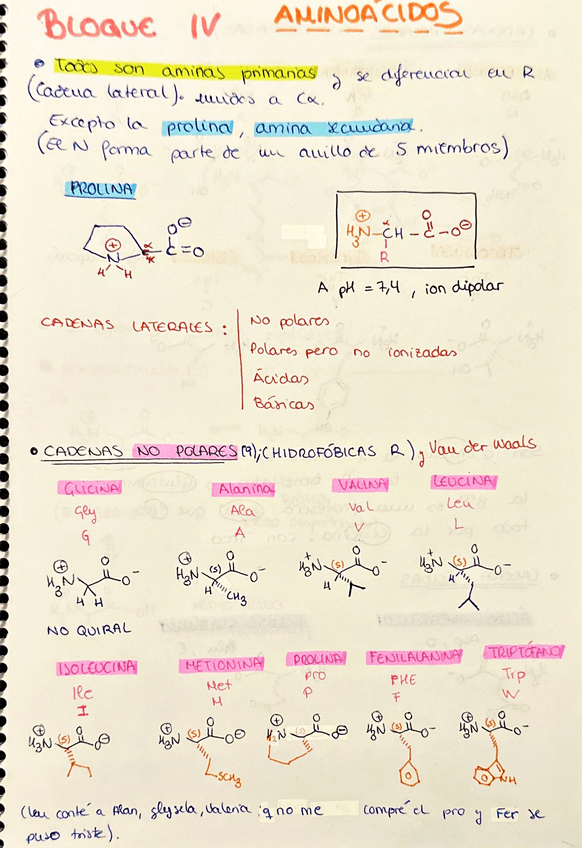 BLOQUE IV AMINOÁCIDOS
• Todos son aminas primarias y se diferencian en R
(Cadena lateral). unidos a Cα.
Excepto la prolina, amina secundaria.
(El N forma parte de un anillo de 5 miembros)
PROLINA
⊕ N H H * α C O⊖ C=O
H₃N⊕ - CH α - C - O⊖ O R
A pH = 7,4, ion dipolar
CADENAS LATERALES:
No polares
Polares pero no ionizadas
Ácidas
Básicas
• CADENAS NO POLARES (9); (HIDROFÓBICAS R) y Van der Waals
GLICINA Alanina VALINA LEUCINA
Gly Ala Val Leu
G A V L
⊕ H₃N O O⁻ H H
⊕ H₃N (S) O O⁻ H CH₃
+ H₃N (S) O O⁻ H
+ H₃N (S) O O⁻ H
NO QUIRAL
ISOLEUCINA METIONINA PROLINA FENILALANINA TRIPTÓFANO
Ile Met Pro PHE Trp
I M P F W
⊕ H₃N (S) O O⊖
⊕ H₃N (S) O O⊖ SCH₃
⊕ H₂N (S) O O⊖
⊕ H₃N (S) O O⁻
⊕ H₃N (S) O O⁻ NH
(leu conté a Alan, glysela, Valeria q no me compré el pro y Fer se
puso triste).